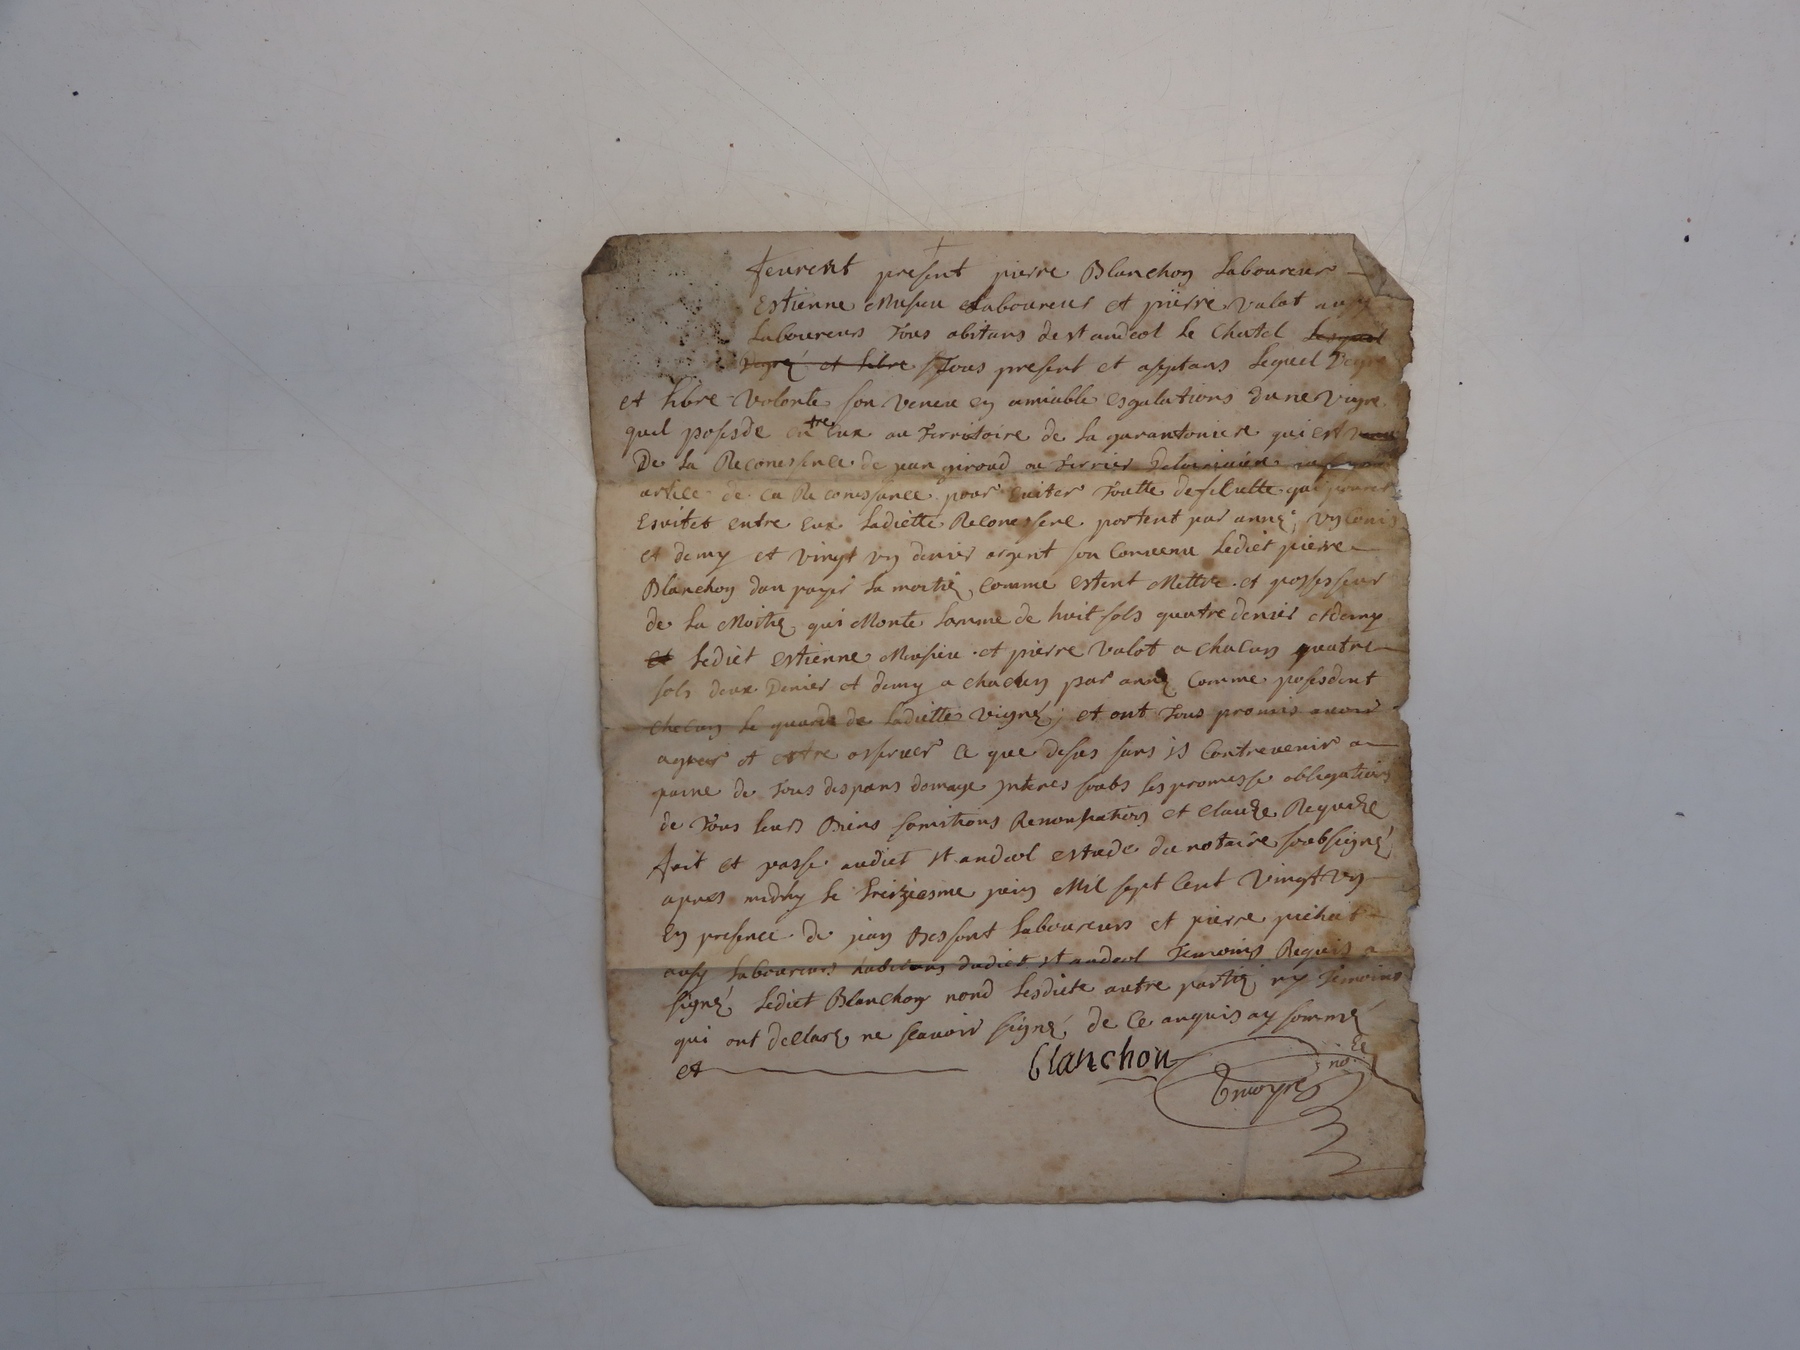 feurent present pierre Blanchon Laboureur
Estienne Musieu Laboureur et pierre valat aussy
Laboureurs Tous abitans de st andeol Le Chatel Lesquel
et libre Tous present et aseptans Lequel
et libre volonte son veneu en amiable esgalations dune vigne
quil posisde entre Eux au Terristoire de La garantoniere qui est
De La Reconessence de jean giroud au Terrier
article de La Reconessance pour Eviter Toutte
Esvites entre Eux Ladiette Reconessence portent par anné,
et demy et vingt un denier argent son Convenu Lediet pierre
Blanchon dan payer La moitié, comme estent Mettre et possesseur
de La Moitié, qui Monte somme de huit sols quatre denier et demy
et Lediet estienne Musieu et pierre valot a chacun quatre
sols deux Denier et demy a chacun par anné Comme posisdent
chacun Le quarde de Ladiette vigne, et ont Tous promis avoir
agreer et estre osserver Ce que desus sans is Contrevenir a
paine de Tous despans domage ynteres soubs Les promesse obligations
de Tous leurs Biens somitions Renonsiations et Clauze Requize
fait et passe audiet st andeol estude du notaire soubsigné
apres midhy le treiziesme juin Mil sept Cent vingt un
En presence de jean Bessont Laboureurs et pierre pichat
ausy Laboureurs habitans dudiet st andeol Temoins Requis a
signé Lediet Blanchon nond Lesdiete autre partie, ny Temoins
qui ont declaré, ne sçavoir signé, de Ce anquis ay sommé
et
blanchon